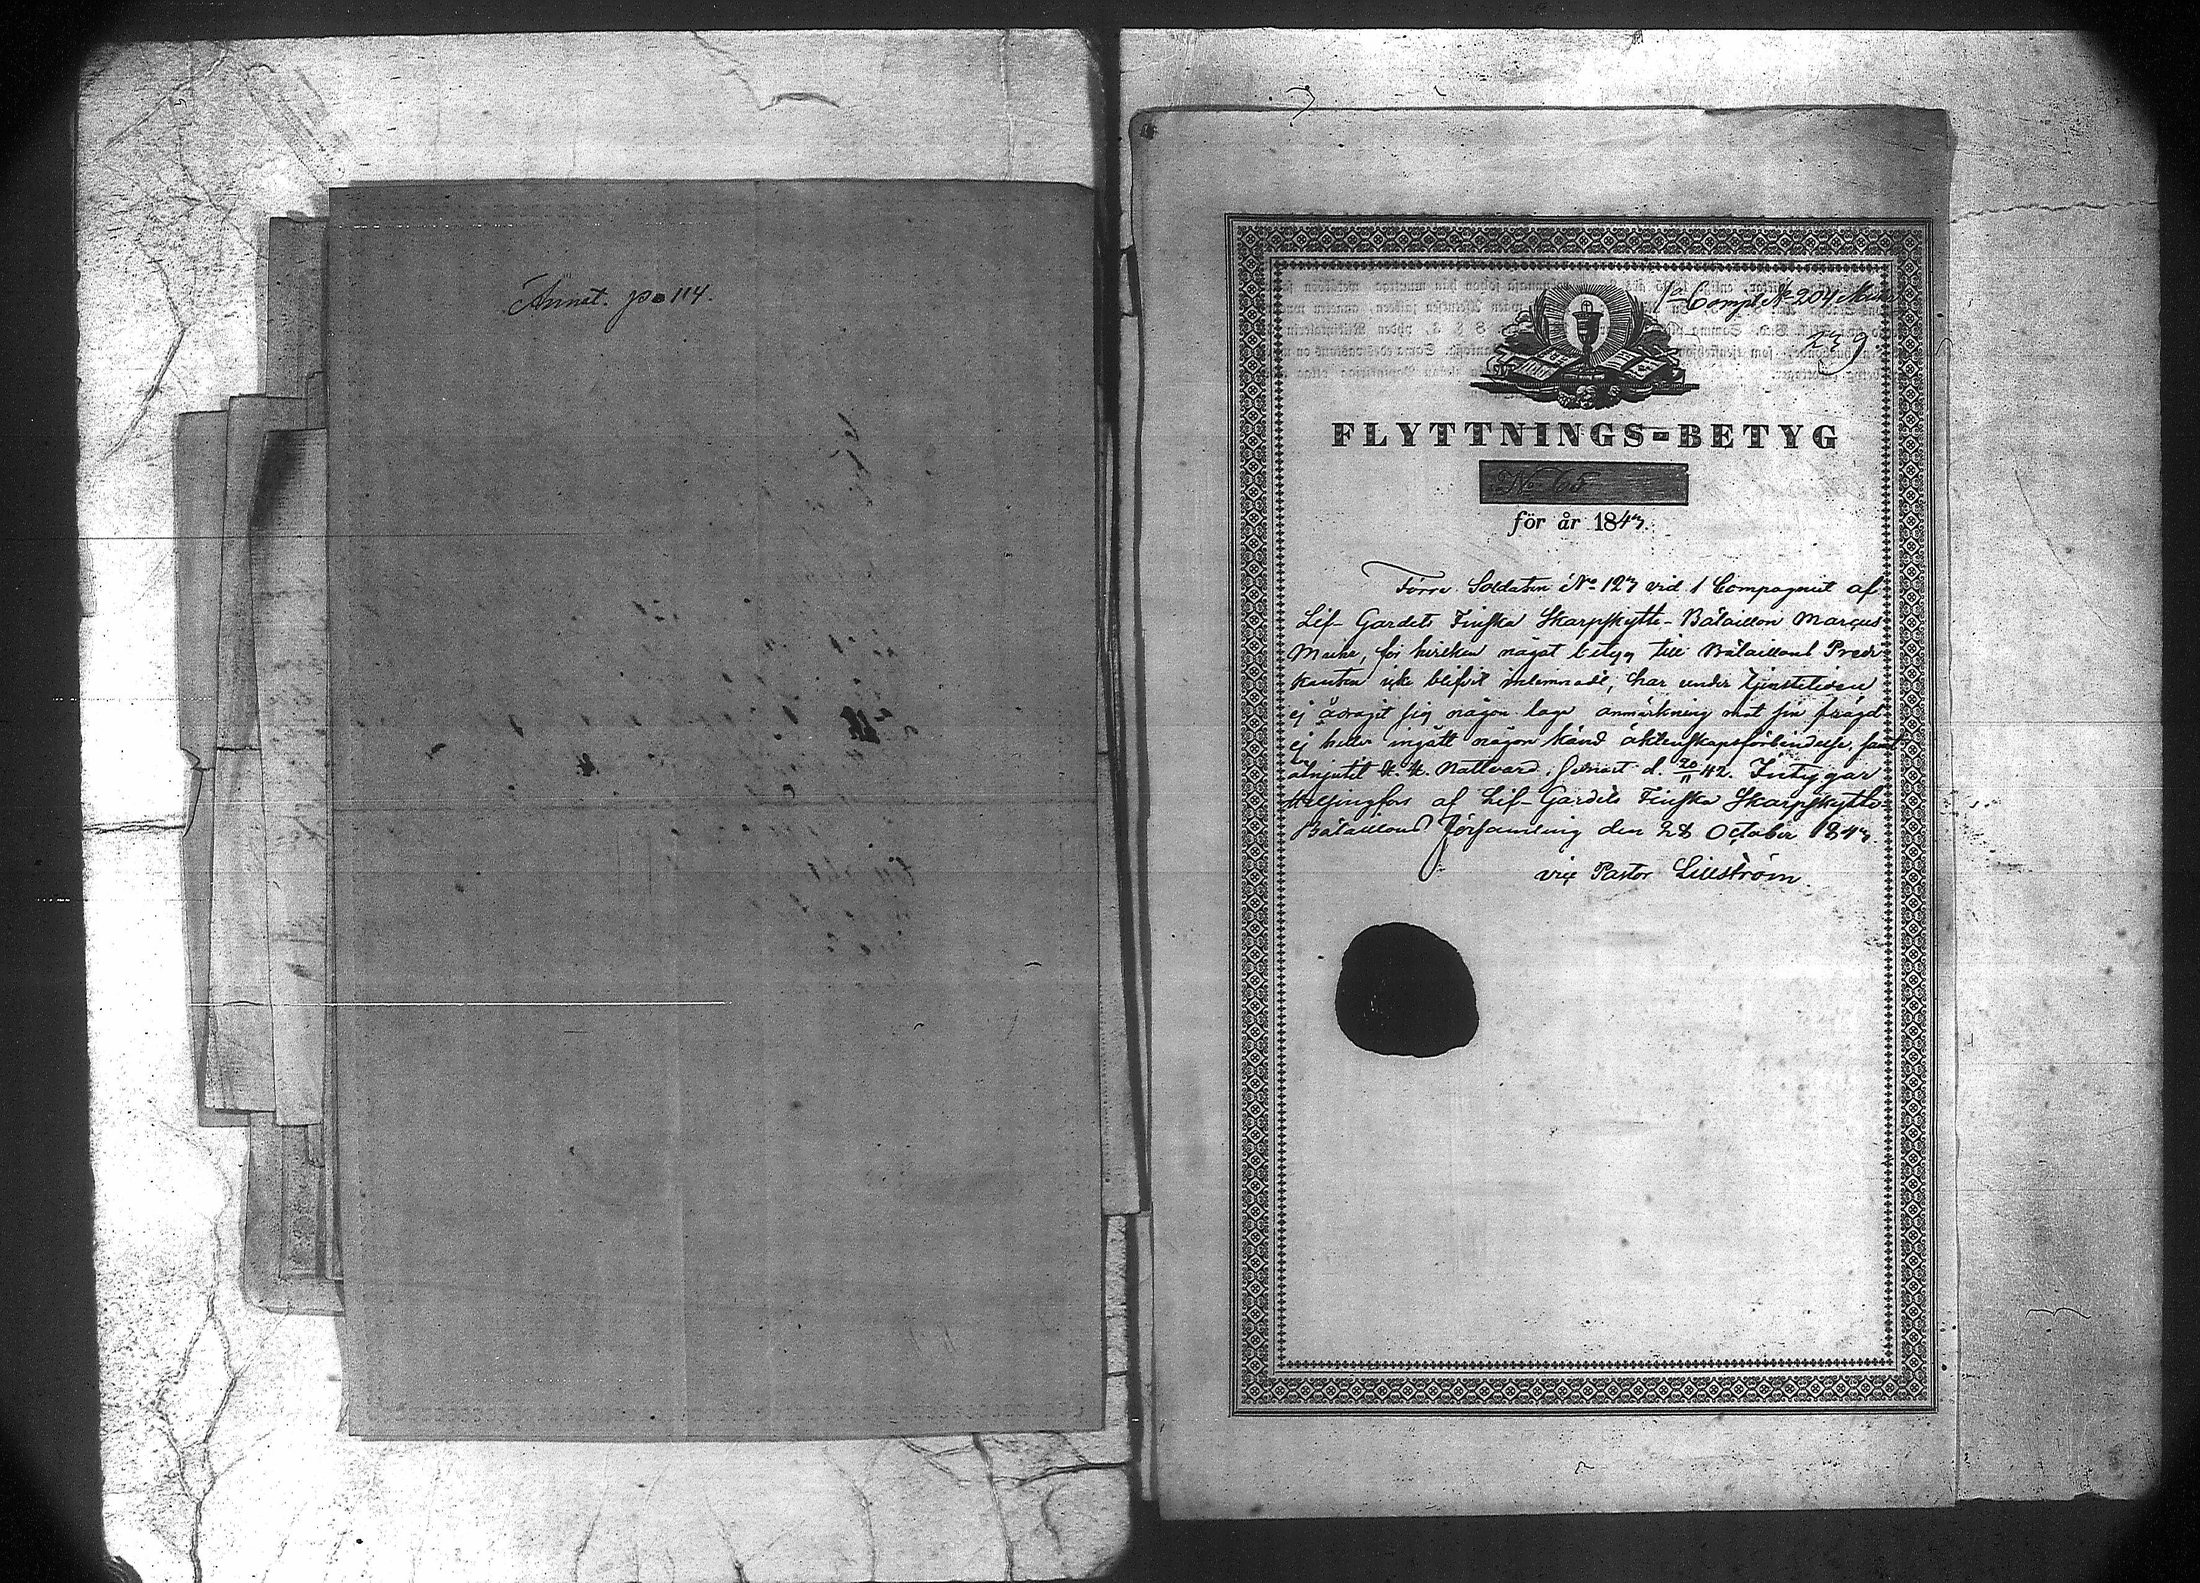 Annot. p 114.
1a Comp. No 204
239.
FLYTTNINGS-BETYG
No 65
för år 1847.
Förre Soldaten No 127 vid 1 Compagniet af
Lif-Gardets Finska Skarpskytte-Bataillon Marcus
för hvilken något betyg till Bataillons Predi-
kanten icke blifvit inlemnadt, har under tjenstetiden
ej ådragit sig någon laga anmärkning mot sin frägd
ej heller ingått någon känd äktenskapsförbindelse, samt
åtnjutit H. H. Nattvard senast d. 20/11 42. Intygar
Helsingfors af Lif-Gardets Finska Skarpskytte
Bataillons Församling den 28 October 1847.
vice Pastor Lilleström